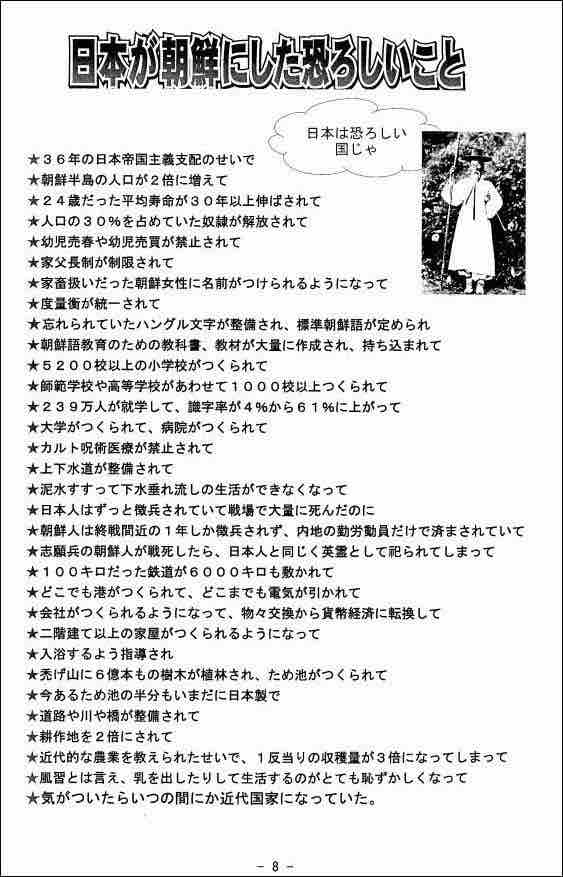 日本が朝鮮にした恐ろしいこと
日本は恐ろしい
国じゃ
★３６年の日本帝国主義支配のせいで
★朝鮮半島の人口が２倍に増えて
★２４歳だった平均寿命が３０年以上伸ばされて
★人口の３０％を占めていた奴隷が解放されて
★幼児売春や幼児売買が禁止されて
★家父長制が制限されて
★家畜扱いだった朝鮮女性に名前がつけられるようになって
★度量衡が統一されて
★忘れられていたハングル文字が整備され、標準朝鮮語が定められ
★朝鮮語教育のための教科書、教材が大量に作成され、持ち込まれて
★５２００校以上の小学校がつくられて
★師範学校や高等学校があわせて１０００校以上つくられて
★２３９万人が就学して、識字率が４％から６１％に上がって
★大学がつくられて、病院がつくられて
★カルト呪術医療が禁止されて
★上下水道が整備されて
★泥水すすって下水垂れ流しの生活ができなくなって
★日本人はずっと徴兵されていて戦場で大量に死んだのに
★朝鮮人は終戦間近の１年しか徴兵されず、内地の勤労動員だけで済まされていて
★志願兵の朝鮮人が戦死したら、日本人と同じく英霊として祀られてしまって
★１００キロだった鉄道が６０００キロも敷かれて
★どこでも港がつくられて、どこまでも電気が引かれて
★会社がつくられるようになって、物々交換から貨幣経済に転換して
★二階建て以上の家屋がつくられるようになって
★入浴するよう指導され
★禿げ山に６億本もの樹木が植林され、ため池がつくられて
★今あるため池の半分もいまだに日本製で
★道路や川や橋が整備されて
★耕作地を２倍にされて
★近代的な農業を教えられたせいで、１反当りの収穫量が３倍になってしまって
★風習とは言え、乳を出したりして生活するのがとても恥ずかしくなって
★気がついたらいつの間にか近代国家になっていた。
－ 8 －